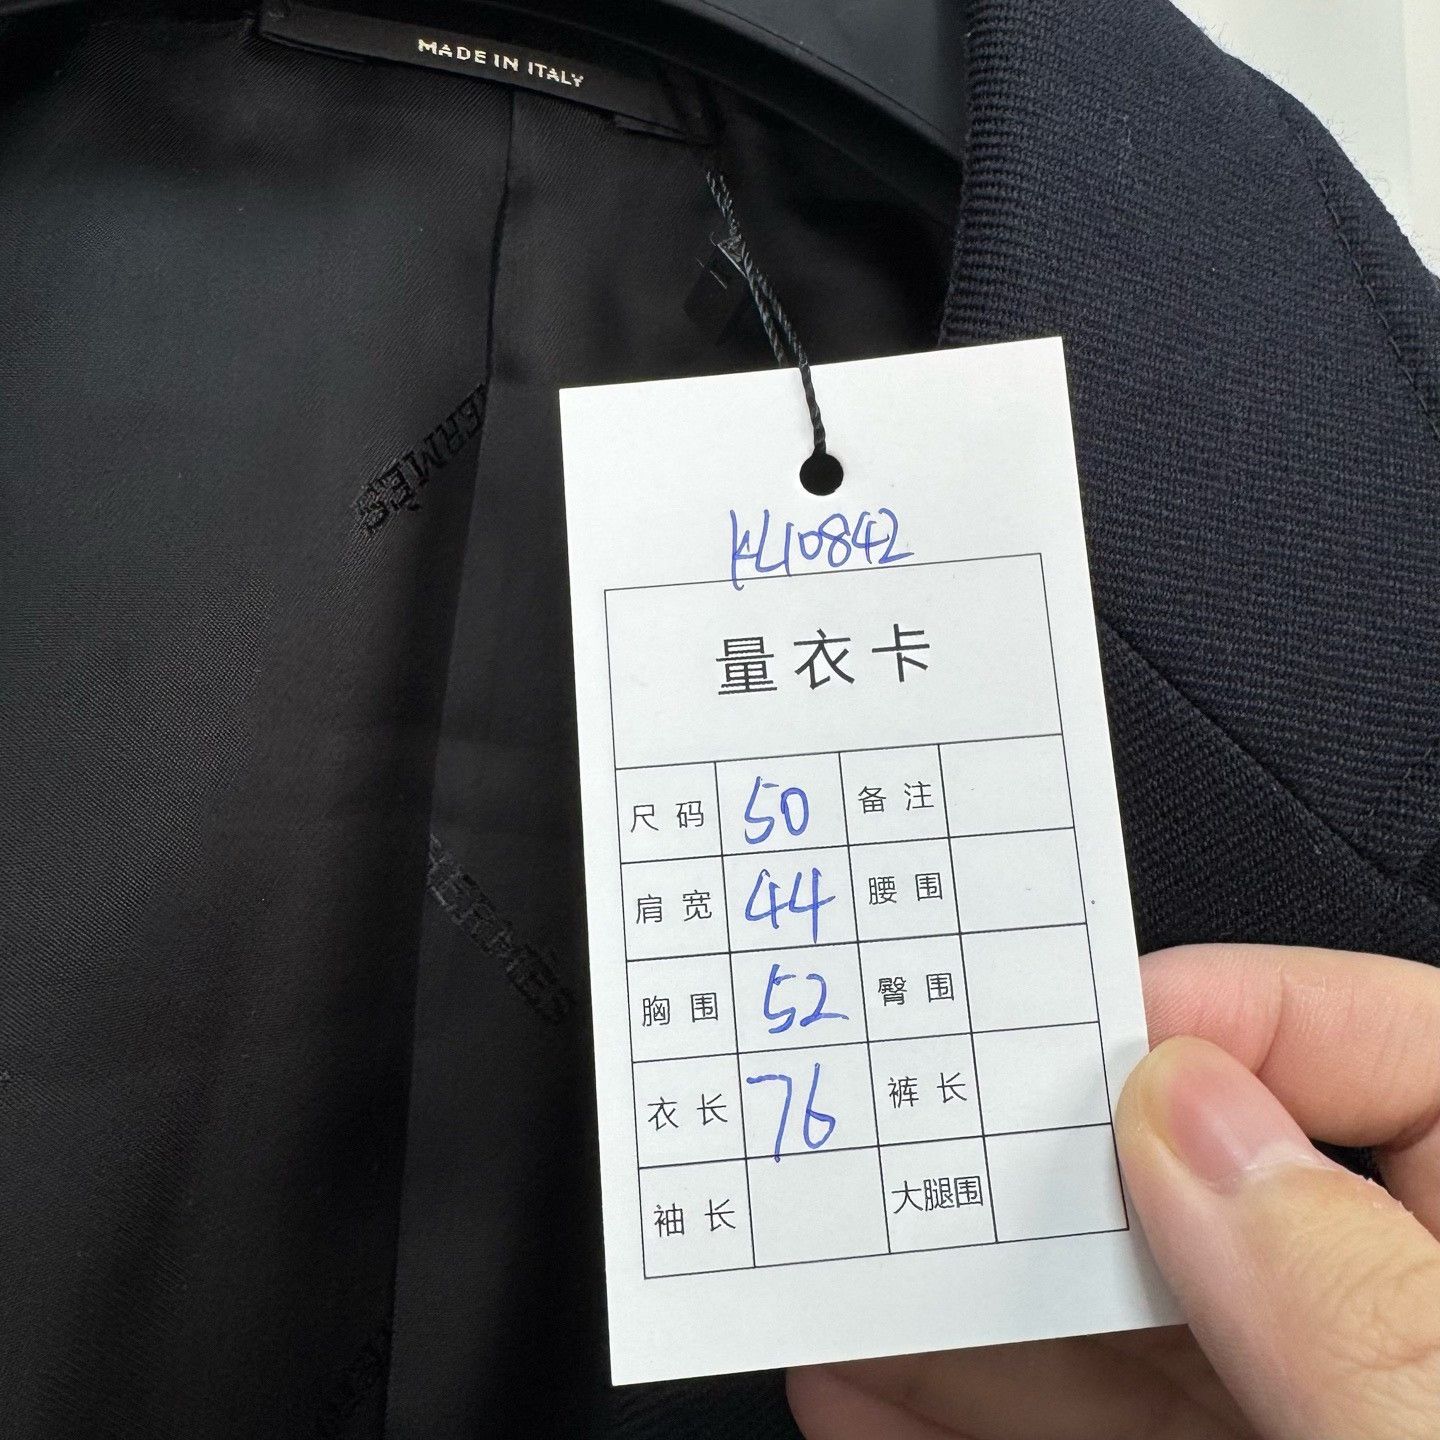 MADE IN ITALY
HERMÈS
HERMÈS
KL10842
量衣卡
尺码 50 备注
肩宽 44 腰围
胸围 52 臀围
衣长 76 裤长
袖长 大腿围